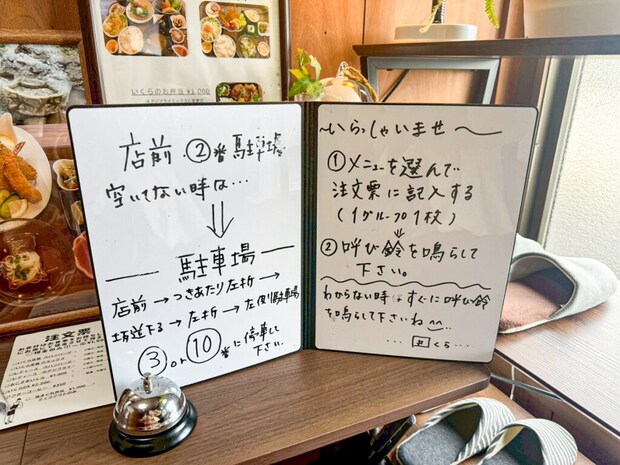 いくらのお弁当 ¥1,000
店前・②番駐車場
空いてない時は…
⇓
駐車場
店前→つきあたり左折→
坂道下る→左折→左側駐車場
③or⑩番に停車して
下さい。
〜いらっしゃいませ〜
①メニューを選んで
注文票に記入する
(1グループ1枚)
⇓
②呼び鈴を鳴らして
下さい。
わからない時はすぐに呼び鈴
を鳴らして下さいね
くら…
注文票